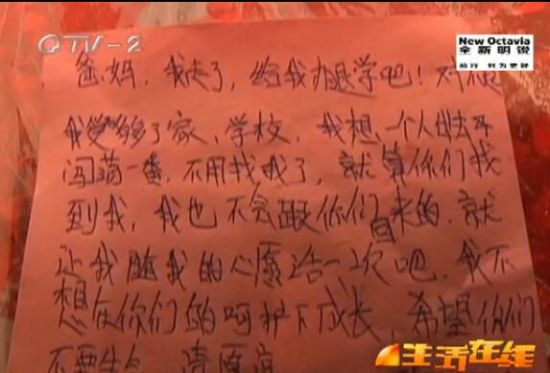 QTV-2
New Octavia
全新明锐
前行 只为更好
爸妈，我走了，给我办退学吧！对不起
我受够了家、学校，我想一个人出去
闯荡一番，不用找我了，就算你们找
到我，我也不会跟你们回来的，就
让我随我的心愿活一次吧，我不
想在你们的呵护下成长 希望你们
不要生气 请原谅
生活在线